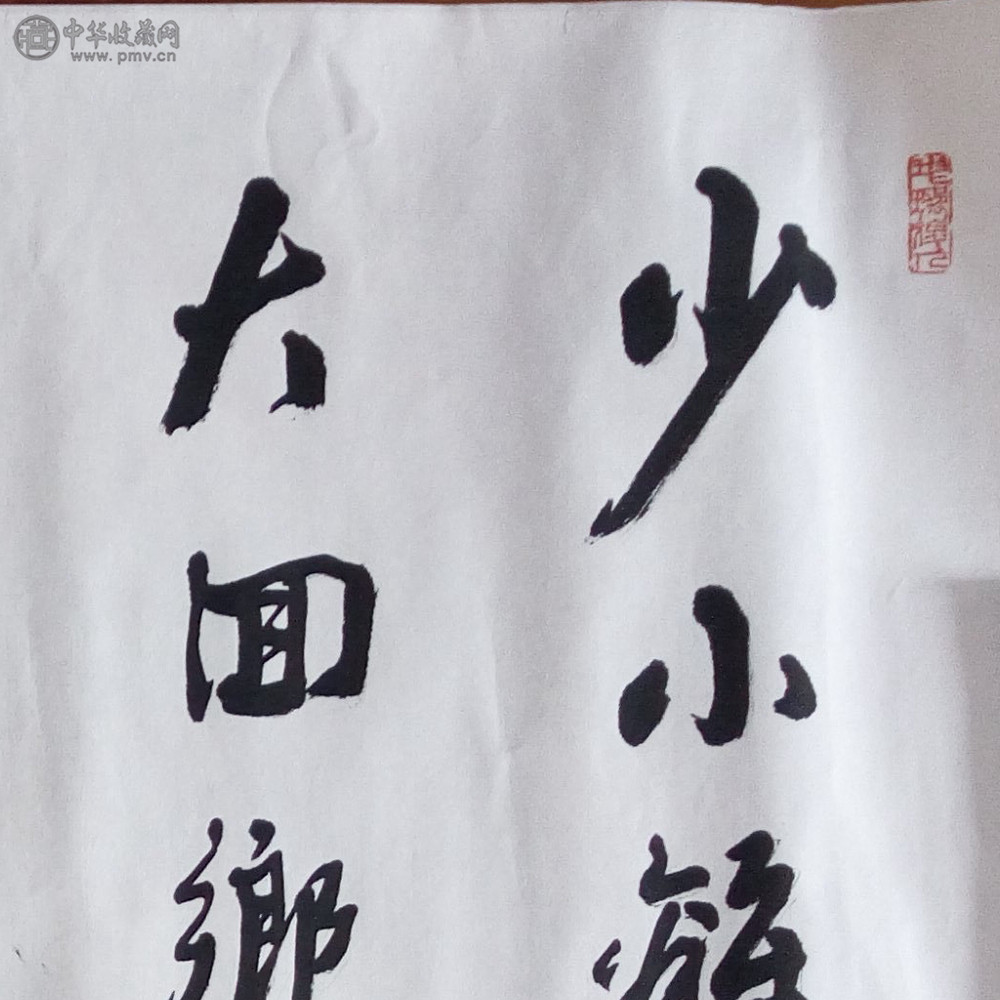 中华收藏网
www.pmv.cn
少小離
大回鄉